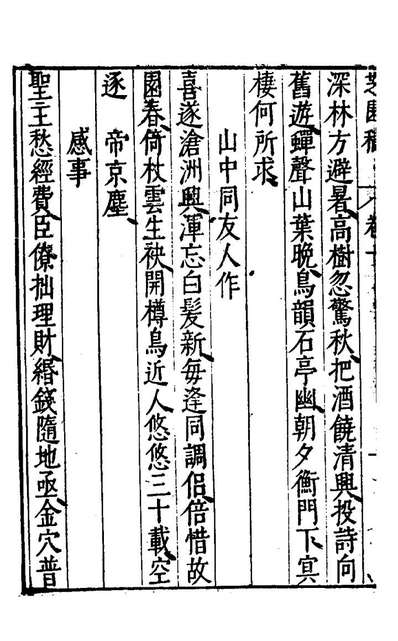 園稿
深林方避暑高樹忽驚秋把酒饒清興投詩向
舊遊蟬聲山葉晚鳥韻石亭幽朝夕衡門下冥
棲何所求
山中同友人作
喜遂滄洲興渾忘白髮新每逢同調侶倍惜故
園春倚杖雲生袂開樽鳥近人悠悠三十載空
逐 帝京塵
感事
聖主愁經費臣僚拙理財緡錢隨地亟金穴普